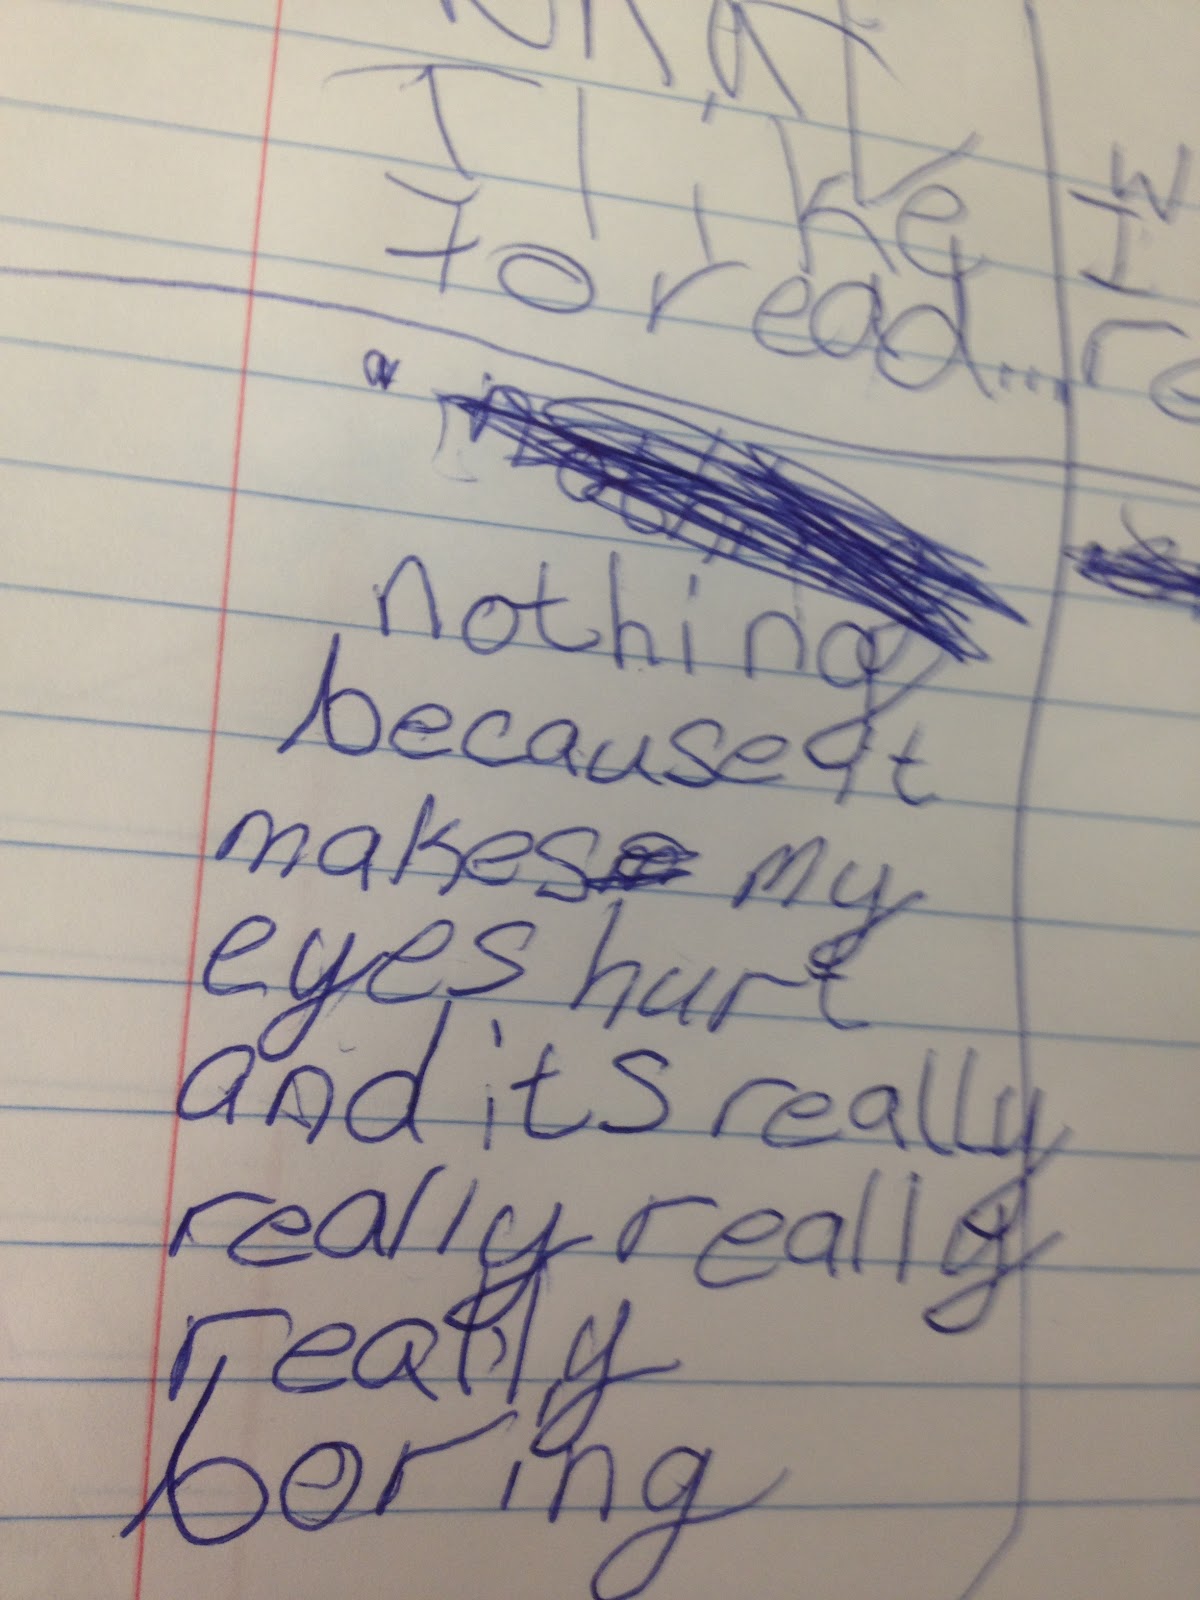 What
I like
to read...
nothing
because it
makes my
eyes hurt
and its really
really really
really
boring